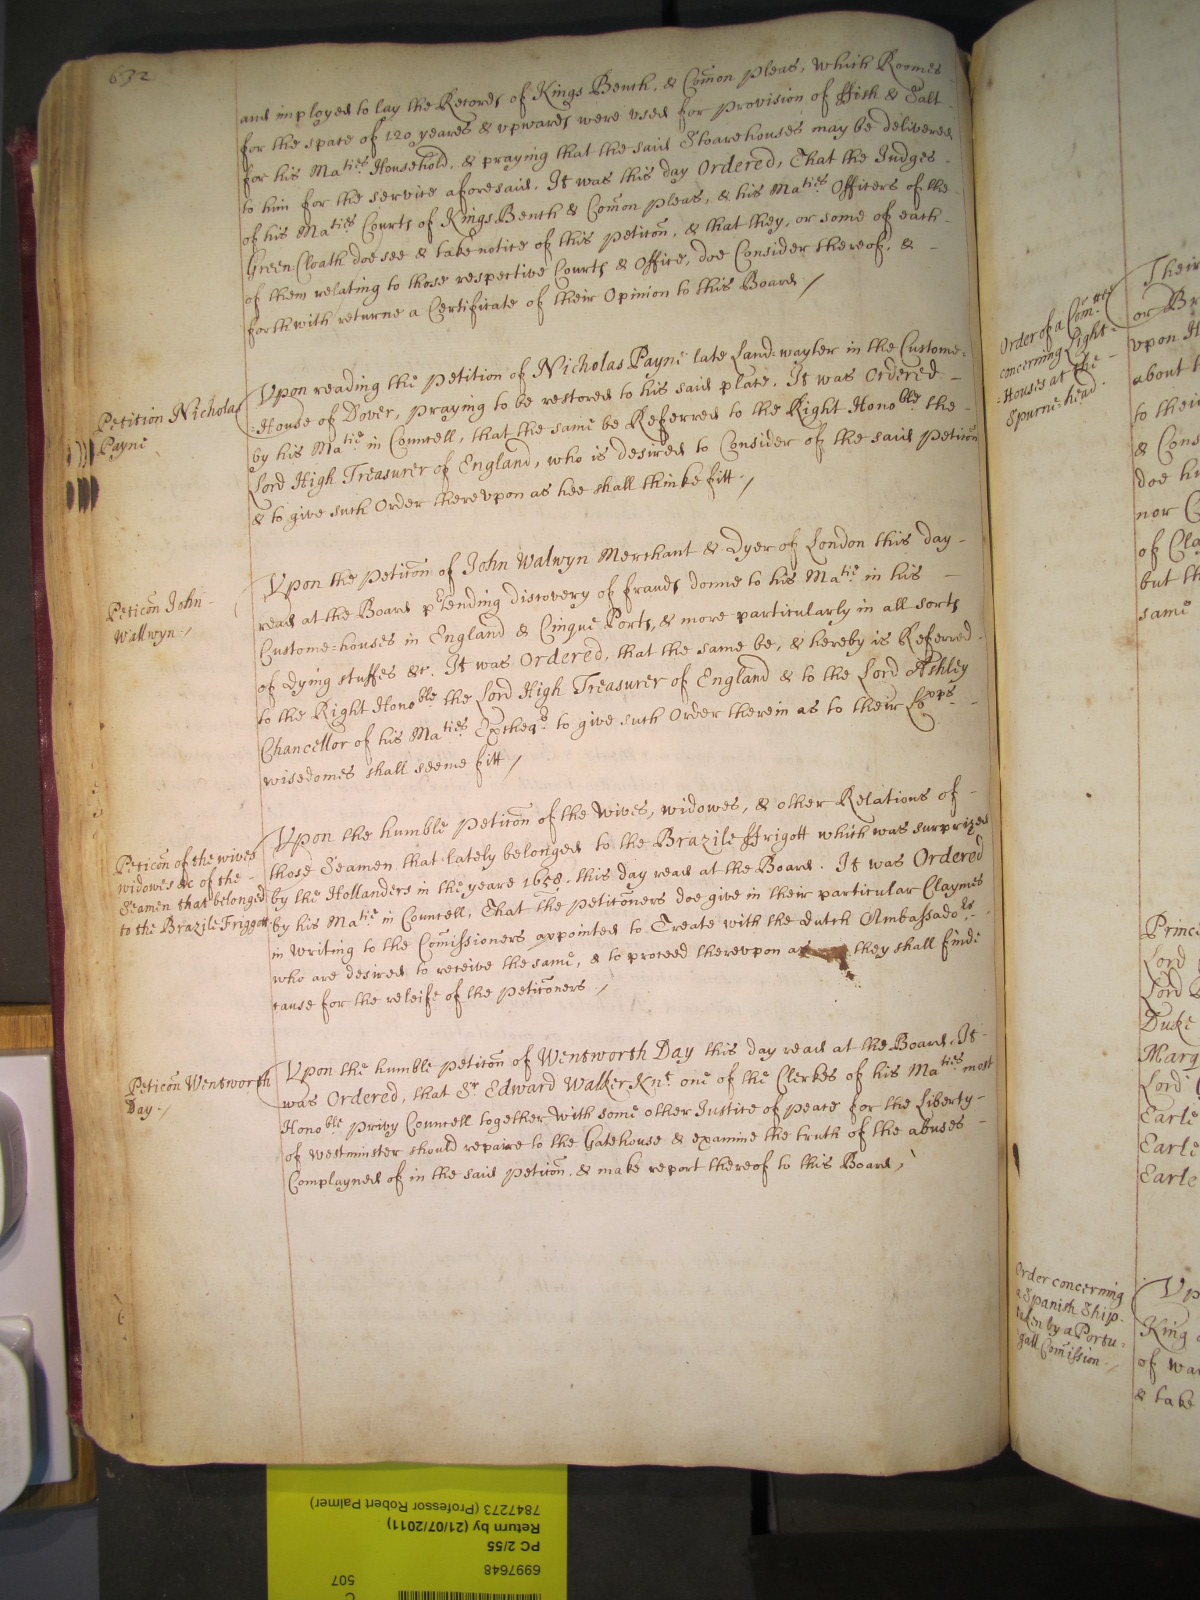 632
and imployed to lay the Records of Kings Bench, & Com̄on pleas, which Roomes
for the space of 120 yeares & upwards were used for provision of ffish & Salt
for his Maties Household, & praying that the said Stoarehouses may be delivered
to him for the service aforesaid. It was this day Ordered, That the Judges -
of his Maties Courts of Kings Bench & Com̄on pleas, & his Maties Officers of the -
Green-Cloath doe see & take notice of this peticōn, & that they, or some of each -
of them relating to those respective Courts & Office, doe Consider thereof, & -
forthwith returne a Certificate of their Opinion to this Board /
Petition Nicholas
Payne
Vpon reading the Petition of Nicholas Payne late Land-wayter in the Custome=
=House of Dover, praying to be restored to his said place. It was Ordered -
by his Matie in Councell, that the same be Referred to the Right Honoble the -
Lord High Treasurer of England, who is desired to Consider of the said peticōn
& to give such Order therevpon as hee shall thinke fitt. /
Peticōn John -
Wallwyn - /
Vpon the Peticōn of John Walwyn Merchant & Dyer of London this day -
read at the Board ptending discovery of frauds donne to his Matie in his -
Custome=houses in England & Cinque Ports, & more particularly in all sorts
of dying stuffes &c. It was Ordered, that the same be, & hereby is Referred -
to the Right Honoble the Lord High Treasurer of England & to the Lord Ashley
Chancellor of his Maties Excheqr to give such Order therein as to their Lōps -
wisedomes shall seeme fitt /
Peticōn of the wives
widowes &c of the -
Seamen that belonged
to the Brazile Friggott
Vpon the humble peticōn of the Wives, widowes, & other Relations of -
those Seamen that lately belonged to the Brazile ffrigott which was surprized
by the Hollanders in the yeare 1658. this day read at the Board. It was Ordered
by his Matie in Councell, That the peticōners doe give in their particular Claymes
in writing to the Com̄issioners appointed to Treate with the dutch Ambassadors -
who are desired to receive the same, & to proceed therevpon as they shall finde
cause for the releife of the peticōners /
Peticōn Wentworth
Day - /
Vpon the humble peticōn of Wentworth Day this day read at the Board. It -
was Ordered, that Sr Edward Walker Knt one of the Clerkes of his Maties most
Honoble privy Councell together with some other Justice of peace for the Liberty -
of Westminster should repaire to the Gatehouse & examine the truth of the abuses -
Complayned of in the said peticōn. & make report thereof to this Board /
Order of a Com̄ttee
concerning Light-
-Houses at the -
Spurne=head.
Their
or Br
vpon
about
to their
& Cons
doe
nor
of Cla
but th
same
Prince
Lord
Lord
Duke
Marq
Lord
Earle
Earle
Earle
Order concerning
a Spanish Ship
taken by a Portu-
gall Com̄ission - /
Vp
King
of wa
& take
C
507
6997648
PC 2/55
Return by (21/07/2011)
7847273 (Professor Robert Palmer)